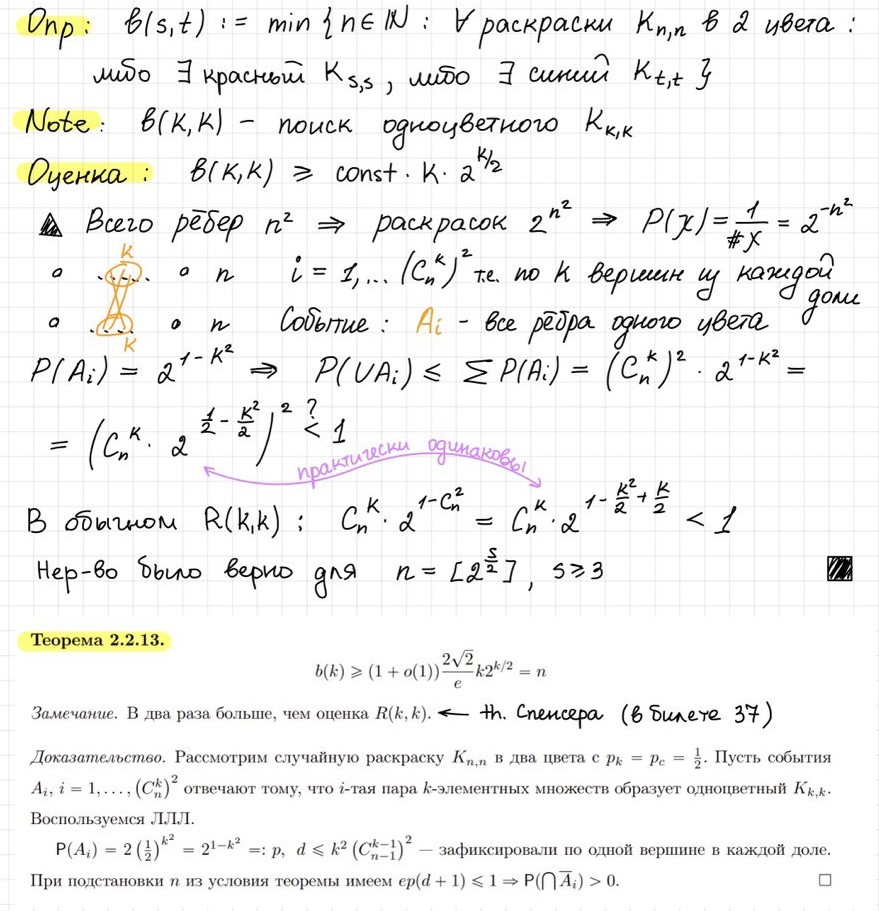 Опр: b(s,t) := min {n ∈ ℕ : ∀ раскраски K_{n,n} в 2 цвета :
либо ∃ красный K_{s,s}, либо ∃ синий K_{t,t}}
Note: b(K,K) – поиск одноцветного K_{K,K}
Оценка: b(K,K) ≥ const · K · 2^{K/2}
▲ Всего рёбер n² ⇒ раскрасок 2^{n²} ⇒ P(χ) = 1/#χ = 2^{-n²}
K
n i = 1,... (C_n^K)² т.е. по K вершин из каждой доли
n Событие: A_i – все рёбра одного цвета
K
P(A_i) = 2^{1-K²} ⇒ P(∪A_i) ≤ ΣP(A_i) = (C_n^K)² · 2^{1-K²} =
= (C_n^K · 2^{1/2 - K²/2})² <? 1
практически одинаковы
В обычном R(k,k): C_n^K · 2^{1-C_n^2} = C_n^K · 2^{1 - K²/2 + K/2} < 1
Нер-во было верно для n = [2^{s/2}], s ≥ 3
Теорема 2.2.13.
b(k) ⩾ (1 + o(1)) 2√2/e k2^{k/2} = n
Замечание. В два раза больше, чем оценка R(k, k). ← th. Спенсера (в билете 37)
Доказательство. Рассмотрим случайную раскраску K_{n,n} в два цвета с p_k = p_c = 1/2. Пусть события
A_i, i = 1, . . . , (C_n^k)² отвечают тому, что i-тая пара k-элементных множеств образует одноцветный K_{k,k}.
Воспользуемся ЛЛЛ.
P(A_i) = 2 (1/2)^{k²} = 2^{1-k²} =: p, d ⩽ k² (C_{n-1}^{k-1})² — зафиксировали по одной вершине в каждой доле.
При подстановки n из условия теоремы имеем ep(d + 1) ⩽ 1 ⇒ P(⋂ A̅_i) > 0. □